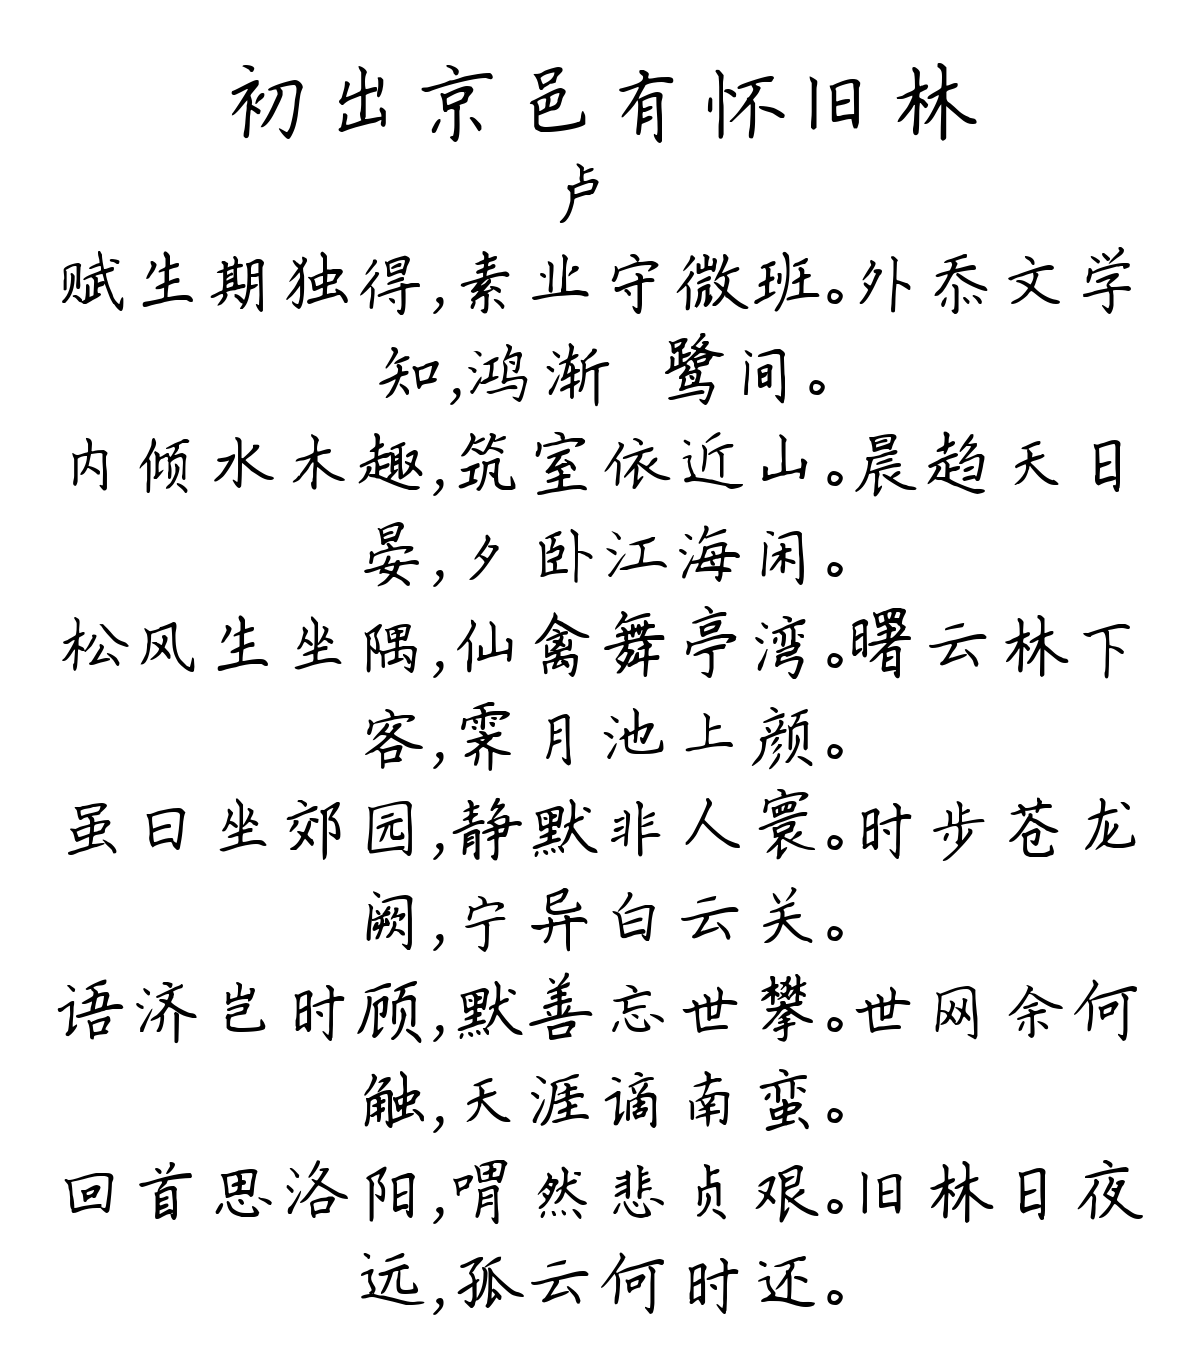 初出京邑有怀旧林
卢
赋生期独得,素业守微班。外忝文学
知,鸿渐 鹭间。
内倾水木趣,筑室依近山。晨趋天日
晏,夕卧江海闲。
松风生坐隅,仙禽舞亭湾。曙云林下
客,霁月池上颜。
虽曰坐郊园,静默非人寰。时步苍龙
阙,宁异白云关。
语济岂时顾,默善忘世攀。世网余何
触,天涯谪南蛮。
回首思洛阳,喟然悲贞艰。旧林日夜
远,孤云何时还。